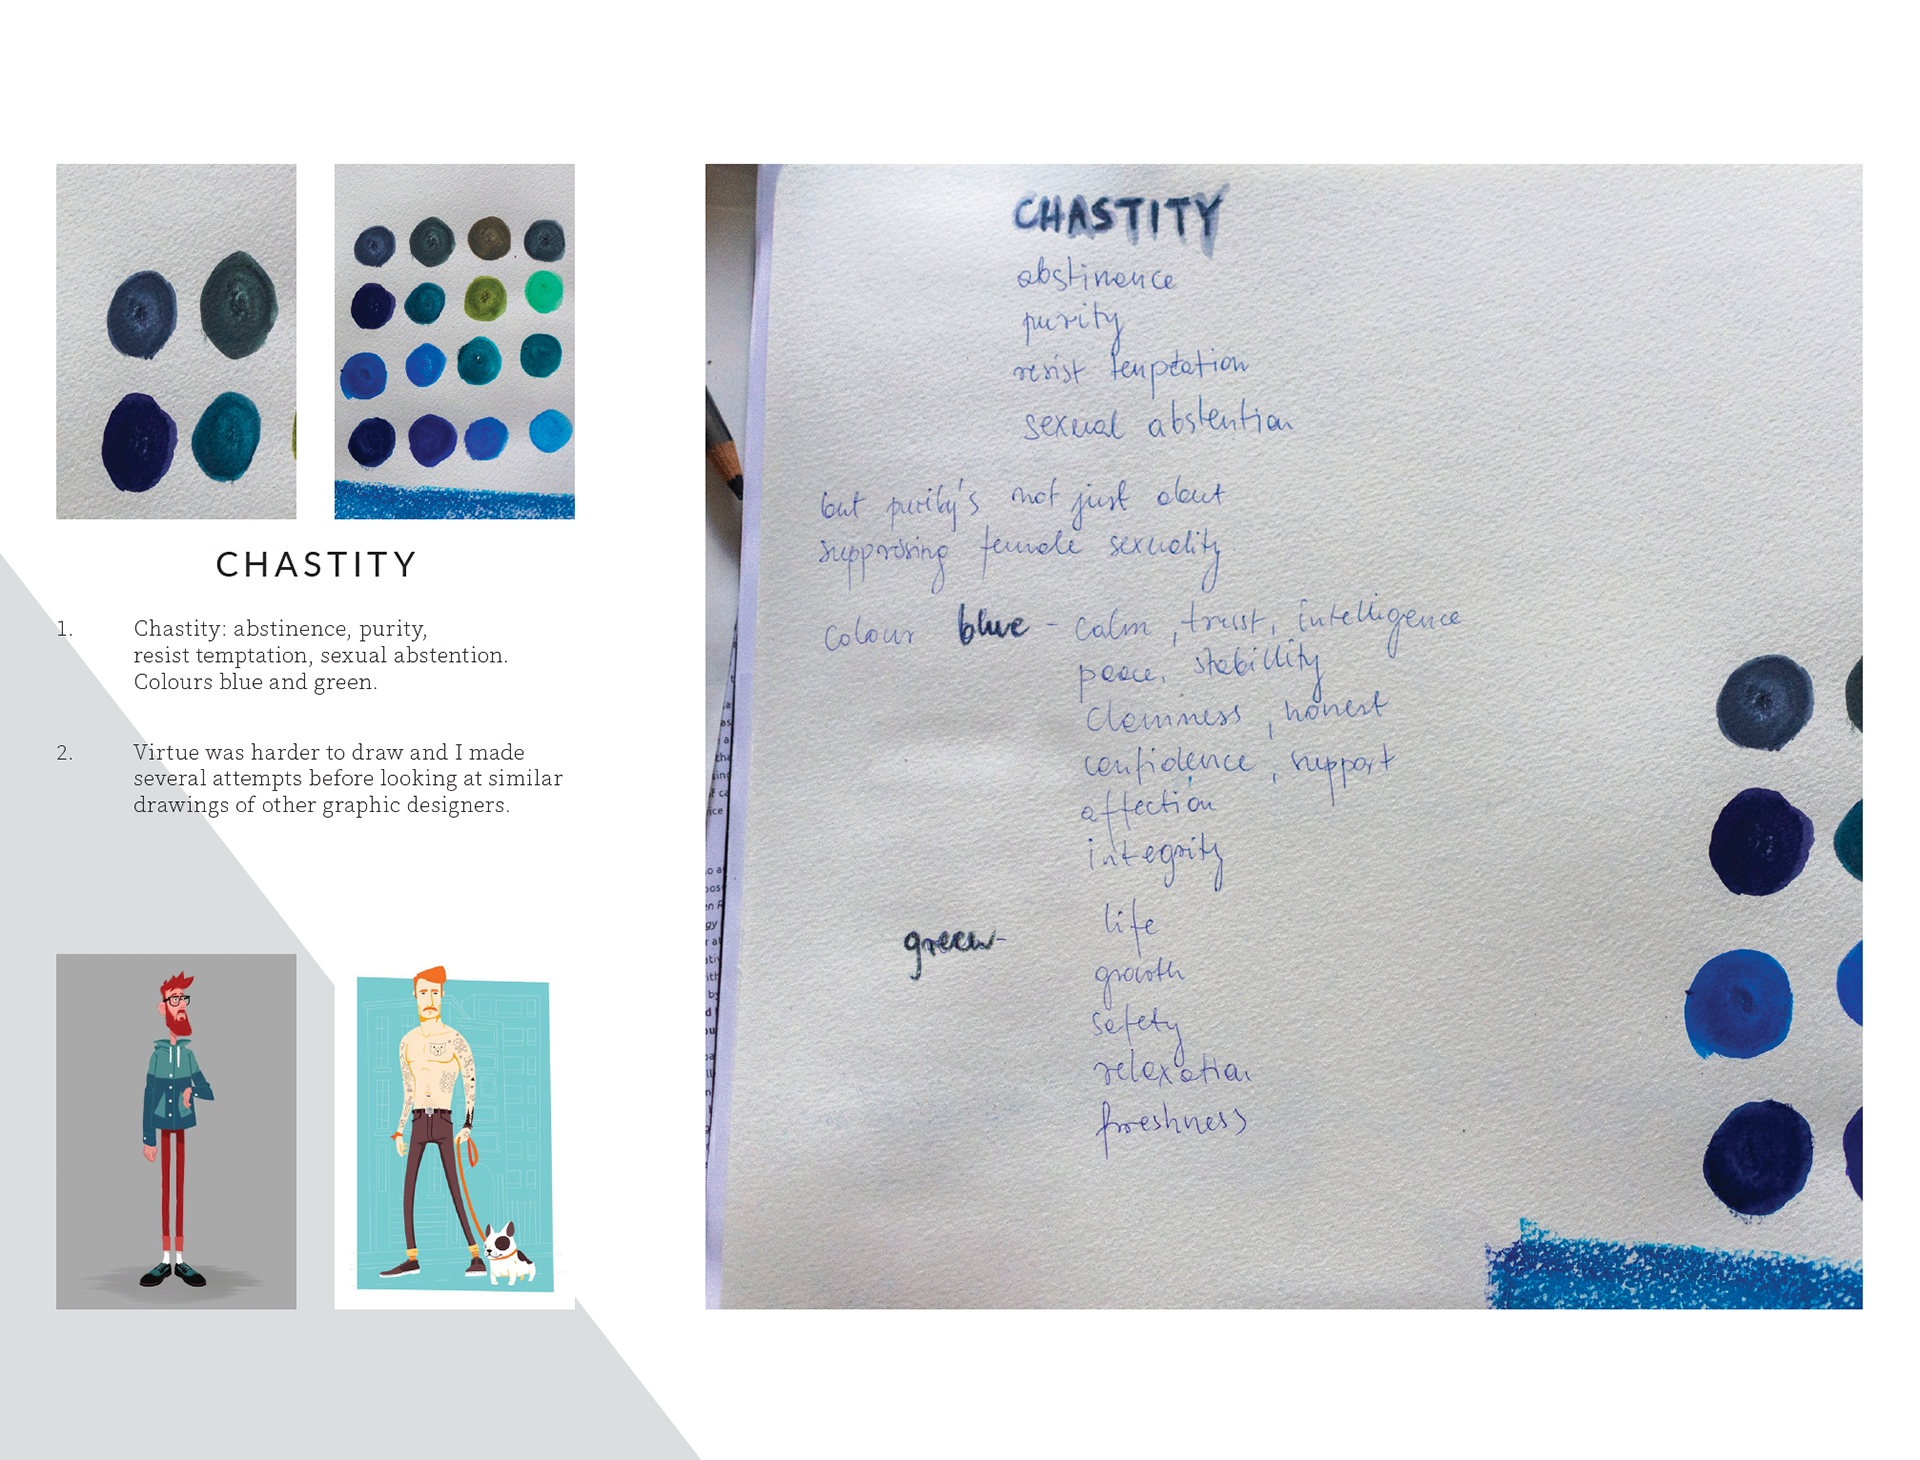 CHASTITY
1. Chastity: abstinence, purity,
resist temptation, sexual abstention.
Colours blue and green.
2. Virtue was harder to draw and I made
several attempts before looking at similar
drawings of other graphic designers.
CHASTITY
abstinence
purity
resist temptation
sexual abstention
but purity's not just about
supprosing female sexuality.
Colour blue - calm, trust, intelligence
peace, stabillity
cleaniness, honest
confidence, support
affection
integrity
green-
life
growth
safety
relaxation
freshness